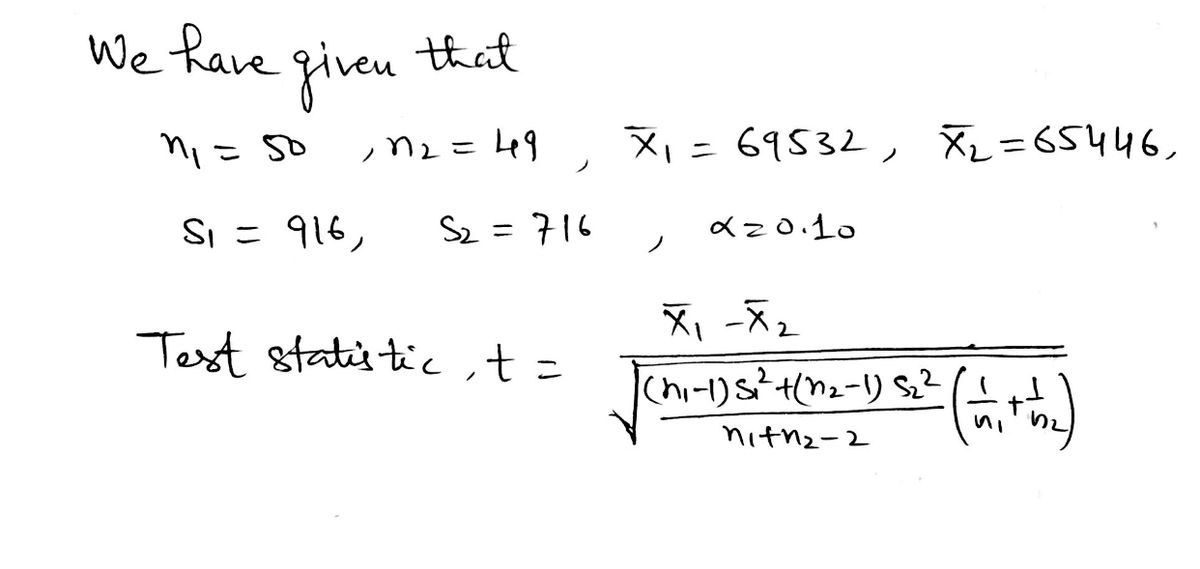 We have given that
n₁ = 50 , n₂ = 49 , x̄₁ = 69532 , x̄₂ = 65446,
S₁ = 916, S₂ = 716 , α = 0.10
Test statistic , t = (x̄₁ - x̄₂) / √( ((n₁-1) S₁² + (n₂-1) S₂²) / (n₁+n₂-2) (1/n₁ + 1/n₂) )